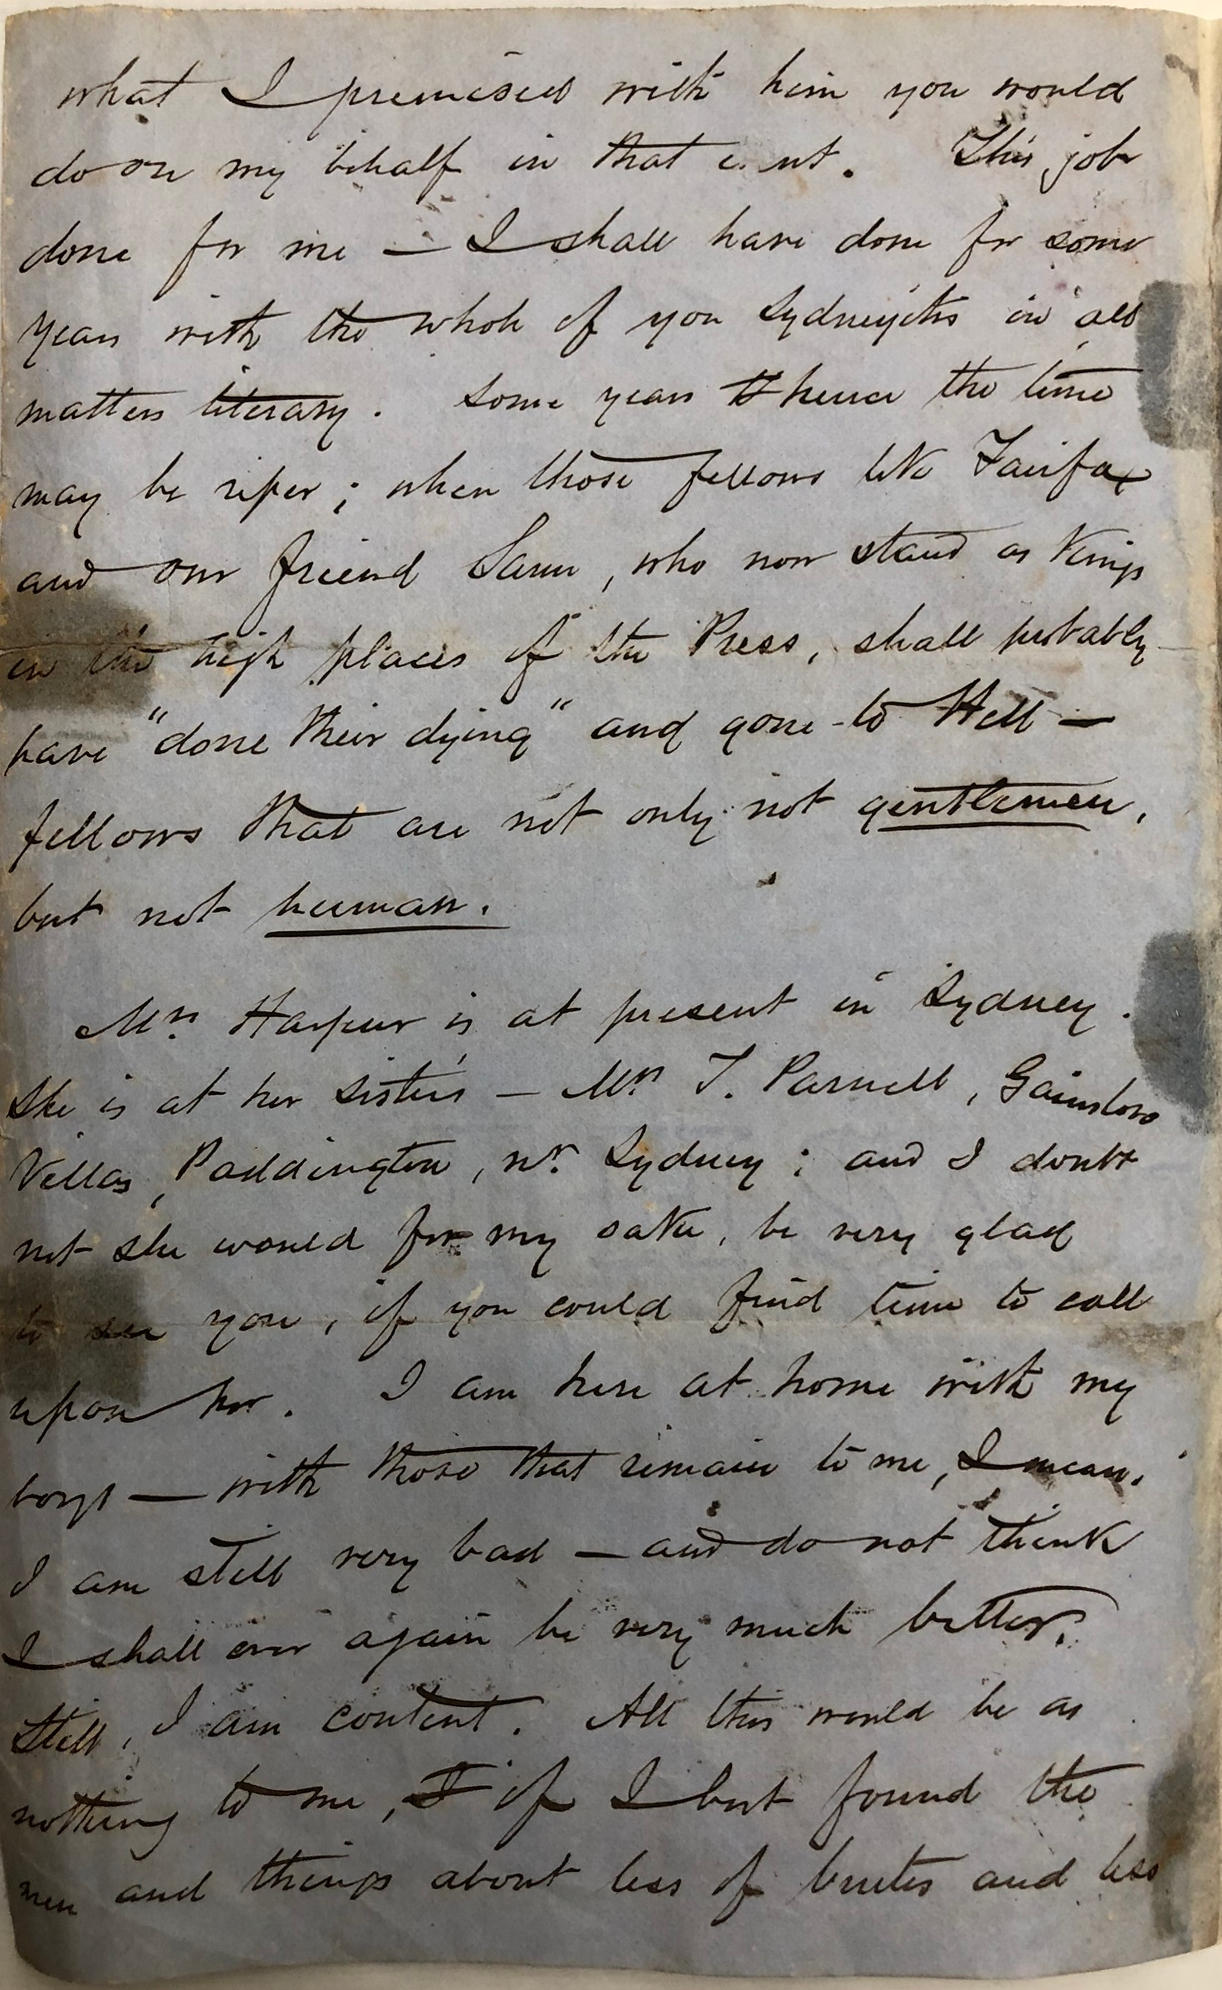 what I promised with him you would
do on my behalf in that event. This job
done for me — I shall have done for some
years with the whole of you Sydneyites in all
matters literary. Some years hence the time
may be riper; when those fellows like Fairfax
and our friend Sam, who now stand as Kings
in the high places of the Press, shall probably
have "done their dying" and gone to Hell —
fellows that are not only not gentlemen,
but not human.
Mrs. Harpur is at present in Sydney.
She is at her sister's — Mrs T. Parnell, Gainsboro
Villas, Paddington, nr. Sydney; and I doubt
not she would for my sake, be very glad
to see you, if you could find time to call
upon her. I am here at home with my
boys — with those that remain to me, I mean.
I am still very bad — and do not think
I shall ever again be very much better.
Still, I am content. All this would be as
nothing to me, if I but found the
men and things about less of brutes and less